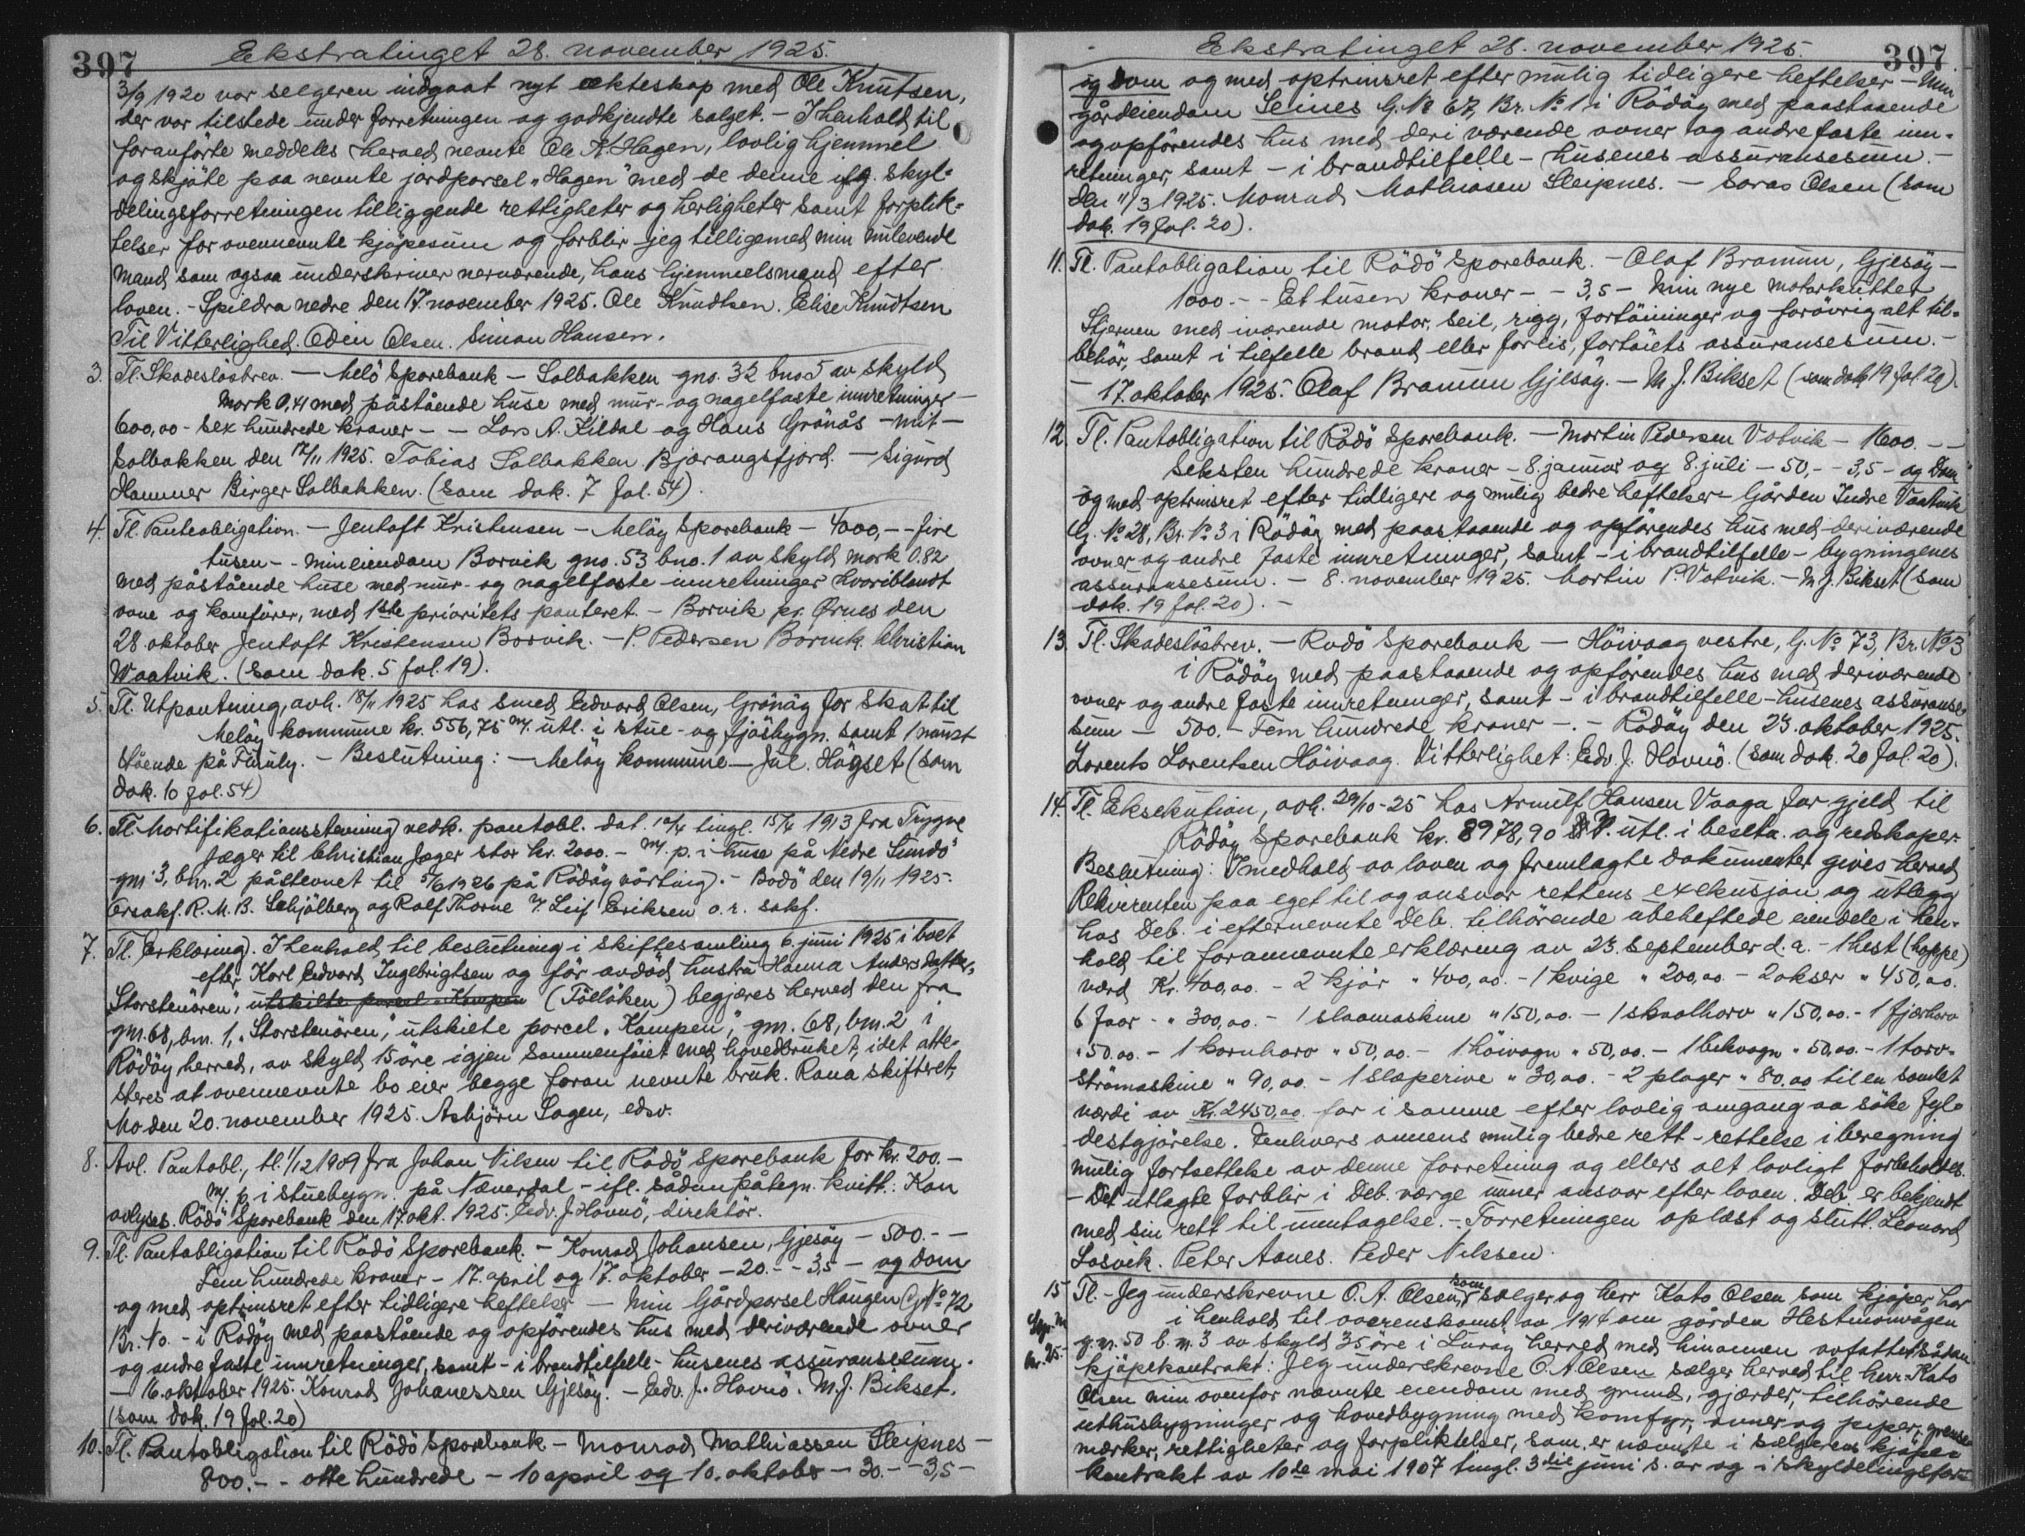 397
Ekstratinget 28. november 1925.
3/9 1920 var selgeren indgaat nyt ekteskap med Ole Knutsen,
der var tilstede under forretningen og godkjendte salget. - I henhold til
foranförte meddeles herved nevnte Ole K. Hagen, lovlig hjemmel
og skjöte paa nevnte jordparsel "Hagen" med de denne iflg. skyl-
delingsforretningen tilliggende rettigheter og herligheter samt forplik-
telser for ovennevnte kjöpesum og forblir jeg tilligemed min nulevende
mand som ogsaa underskriver nerværende, hans hjemmelsmand efter
loven. - Spildra nedre den 17. november 1925. Ole Knudtsen. Elise Knudtsen
Til Vitterlighed. Odin Olsen. Simon Hansen.
3. Tl. Skadeslösbrev. - Melö Sparebank - Solbakken gno. 32 bno 5 av skyld
mark 0,41 med påstående huse med mur- og nagelfaste innretninger -
600,00 - sex hundrede kroner - - Lars A. Kildal og Hans Grönås - mit -
Solbakken den 12/11 1925. Tobias Solbakken Bjærangsfjord. - Sigurd
Hammer Birger Solbakken. (som dok. 7 fol. 54).
4. Tl. Panteobligation. - Jentoft Kristensen - Melöy Sparebank - 4000,- - fire
tusen - - min eiendom Borvik gno. 53 bno. 1 av skyld mark 0.82
med påstående huse med mur- og nagelfaste innretninger hvoriblandt
ovne og komfürer, med 1ste prioritets panteret. - Borvik pr. Ørnes den
28 oktober Jentoft Kristensen Borvik. - P. Pedersen Borvik Christian
Waatvik. (som dok. 5 fol. 19).
5. Tl. Utpantning, avh. 18/11 1925 hos smed Edvard Olsen, Grönöy for skat til
Melöy kommune kr. 556,75 m/. utl. i stue- og fjösbygn. samt 1 naust
stående på - Beslutning: - Melöy kommune - Jul. Högset (som
dok. 10 fol. 54)
6. Tl. Mortifikationsstevning vedk. pantobl. dat. 12/4 tingl. 15/4 1913 fra Trygve
Jæger til Christian Jæger stor kr. 2000. - m/. p. i huse på Nedre Sundö
gnr 3, bnr. 2 påstevnet til 5/6 1926 på Rödöy vårting. - Bodö den 19/11 1925.
Orsakf. R. M. B. Schjölberg og Rolf Thorne v/ Leif Eriksen o.r. sakf.
7. Tl. Erklæring. I henhold til beslutning i skiftesamling 6. juni 1925 i boet
efter Karl Edvard Ingebrigtsen og för avdöd hustru Hanna Andersdatter,
Storstenören, utskilte parsel Kampen (Tölläken) begjæres herved den fra
gnr. 68, bnr. 1, "Storstenören," utskilte porcel "Kampen," gnr. 68, bnr. 2 i
Rödöy herred, av skyld 15 öre igjen sammenföiet med hovedbruket, idet atte-
steres at ovennevnte bo eier begge foran nevnte bruk. Rana skifteret,
Mo den 20. november 1925. Asbjörn Lagen, edsv.
8. Avl. Pantobl., tl. 1/12 1909 fra Johan Nilsen til Rödö Sparebank for kr. 200. -
m/. p. i stuebygn. på Næverdal - ifl. sådan påtegn. kvitt.: Kan
avlyses. Rödö Sparebank den 17. okt. 1925. Edv. J. Havnö, direktör.
9. Tl. Pantobligation til Rödö Sparebank. - Konrad Johansen, Gjesöy - 500. - -
Fem hundrede kroner - 17. april og 17. oktober - 20. - - 3,5 - og dom
og med optrinsret efter tidligere heftelser - Min Gårdparsel Haugen G. No 72
Br. No. - i Rödöy med paastående og opförendes hus med deriværende ovner
og andre faste innretninger, samt - i brandtilfelle - husenes assuransesum.
- 16. oktober 1925. Konrad Johanessen Gjesöy. - Edv. J. Havnö. M. J. Bikset.
(som dok. 19 fol. 20)
10. Tl. Pantobligation til Rödö Sparebank - Monrad Mathiassen Sleipnes -
800. - - otte hundrede - 10 april og 10. oktober - 30. - - 3,5 -
Ekstratinget 28. november 1925.
397
og dom og med optrinsret efter mulig tidligere heftelser - Min
gårdeiendom Seines G. No 67, Br. No 1 i Rödöy med paastaaende
og opförendes hus med deri værende ovner og andre faste inn-
retninger, samt - i brandtilfelle - husenes assuransesum. -
den 11/3 1925. Monrad Mathiasen Sleipnes. - Soras Olsen (som
dok. 19 fol. 20).
11. Tl. Pantobligation til Rödö Sparebank. - Olaf Bramun, Gjesöy -
1000. - - Et tusen kroner - - 3,5 - Min nye motorkutter
Stjernen med iværende motor, seil, rigg, fortöininger og forövrig alt til-
behör, samt i tilfelle brand eller forlis, fartöiets assuransesum. -
- 17. oktober 1925. Olaf Bramun Gjesöy. - M. J. Bikset (som dok 19 fol. 20).
12. Tl. Pantobligation til Rödö Sparebank. - Martin Pedersen Votvik - 1600. - -
Seksten hundrede kroner - 8. januar og 8. juli - 50, - - 3,5 - og dom
og med optrinsret efter tidligere og mulig bedre heftelser - Gården Indre Vaatvik
G. No 28, Br. No 3 i Rödöy med paastaaende og opförendes hus med deriværende
ovner og andre faste innretninger, samt - i brandtilfelle - bygningenes
assuransesum. - 8. november 1925. Martin P. Votvik. - M. J. Bikset (som
dok. 19 fol. 20). -
13. Tl. Skadeslösbrev. - Rödö Sparebank - Höivaag vestre, G. No 73, Br. No 3
i Rödöy med paastaaende og opförendes hus med deriværende
ovner og andre faste innretninger, samt - i brandtilfelle - husenes assuranse-
sum - 500. - Fem hundrede kroner - . - Rödöy den 23. oktober 1925.
Lorents Lorentsen Höivaag. Vitterlighet: Edv. J. Havnö. (som dok. 20 fol. 20).
14. Tl. Eksekution, avh. 29/10-25 hos Arnulf Hansen Vaaga for gjeld til
Rödöy Sparebank kr. 8978,90 utl. i besetn. og redskaper.
Beslutning: I medhold av loven og fremlagte dokumenter gives herved
Rekvirenten paa eget til og ansvar rettens exekusjon og utlegg
hos Deb. i efternevnte Deb. tilhörende ubeheftede eiendele i hen-
hold til forannevnte erklæring av 23. september d. a. - 1 hest (hoppe)
værd Kr. 400,00. - 2 kjör " 400,00. - 1 kvige " 200,00 - 2 okser " 450,00.
6 faar - " 300,00. - 1 slaamaskine " 150,00. - 1 skaalharv " 150,00. - 1 fjærharv
" 50.00. - 1 kornharv " 50,00. - 1 höivogn " 50,00. - 1 bekvogn " 50,00. - 1 torv-
strömaskine " 90,00. - 1 slæperive " 30,00. - 2 ploger " 80,00 til en samlet
værdi av Kr. 2450,00. for i samme efter lovlig omgang aa söke fyl-
destgjörelse. Enhvers annens mulig bedre rett - rettelse i beregning
mulig fortsettelse av denne forretning og ellers alt lovligt forbeholdes.
- Det utlagte forblir i Deb. værge unner ansvar efter loven. Deb. er bekjendt
med sin rett til unntagelse. - Forretningen oplæst og slutt. Leonard
Losvik. Peter Aanes. Peder Nilssen.
15 Tl. - Jeg underskrevne O. A. Olsen, som sælger og herr Kato Olsen som kjöper har
i henhold til overenskomst av 1914 om gården Hestmonvågen
g. nr. 50 b. nr. 3 av skyld 35 öre i Luröy herred med hinannen avfattet sådan
kjöpekontrakt: Jeg underskrevne O. A. Olsen sælger herved til herr Kato
Olsen min ovenfor nævnte eiendom med grund, gjærder, tilhörende
uthusbygninger og hovedbygning med komfyr, ovner og piper, grense-
mærker, rettigheter og forpliktelser, som er nævnte i sælgerens kjöpe-
kontrakt av 10de mai 1907 tingl. 3die juni s. år og i skyldelingsfor-